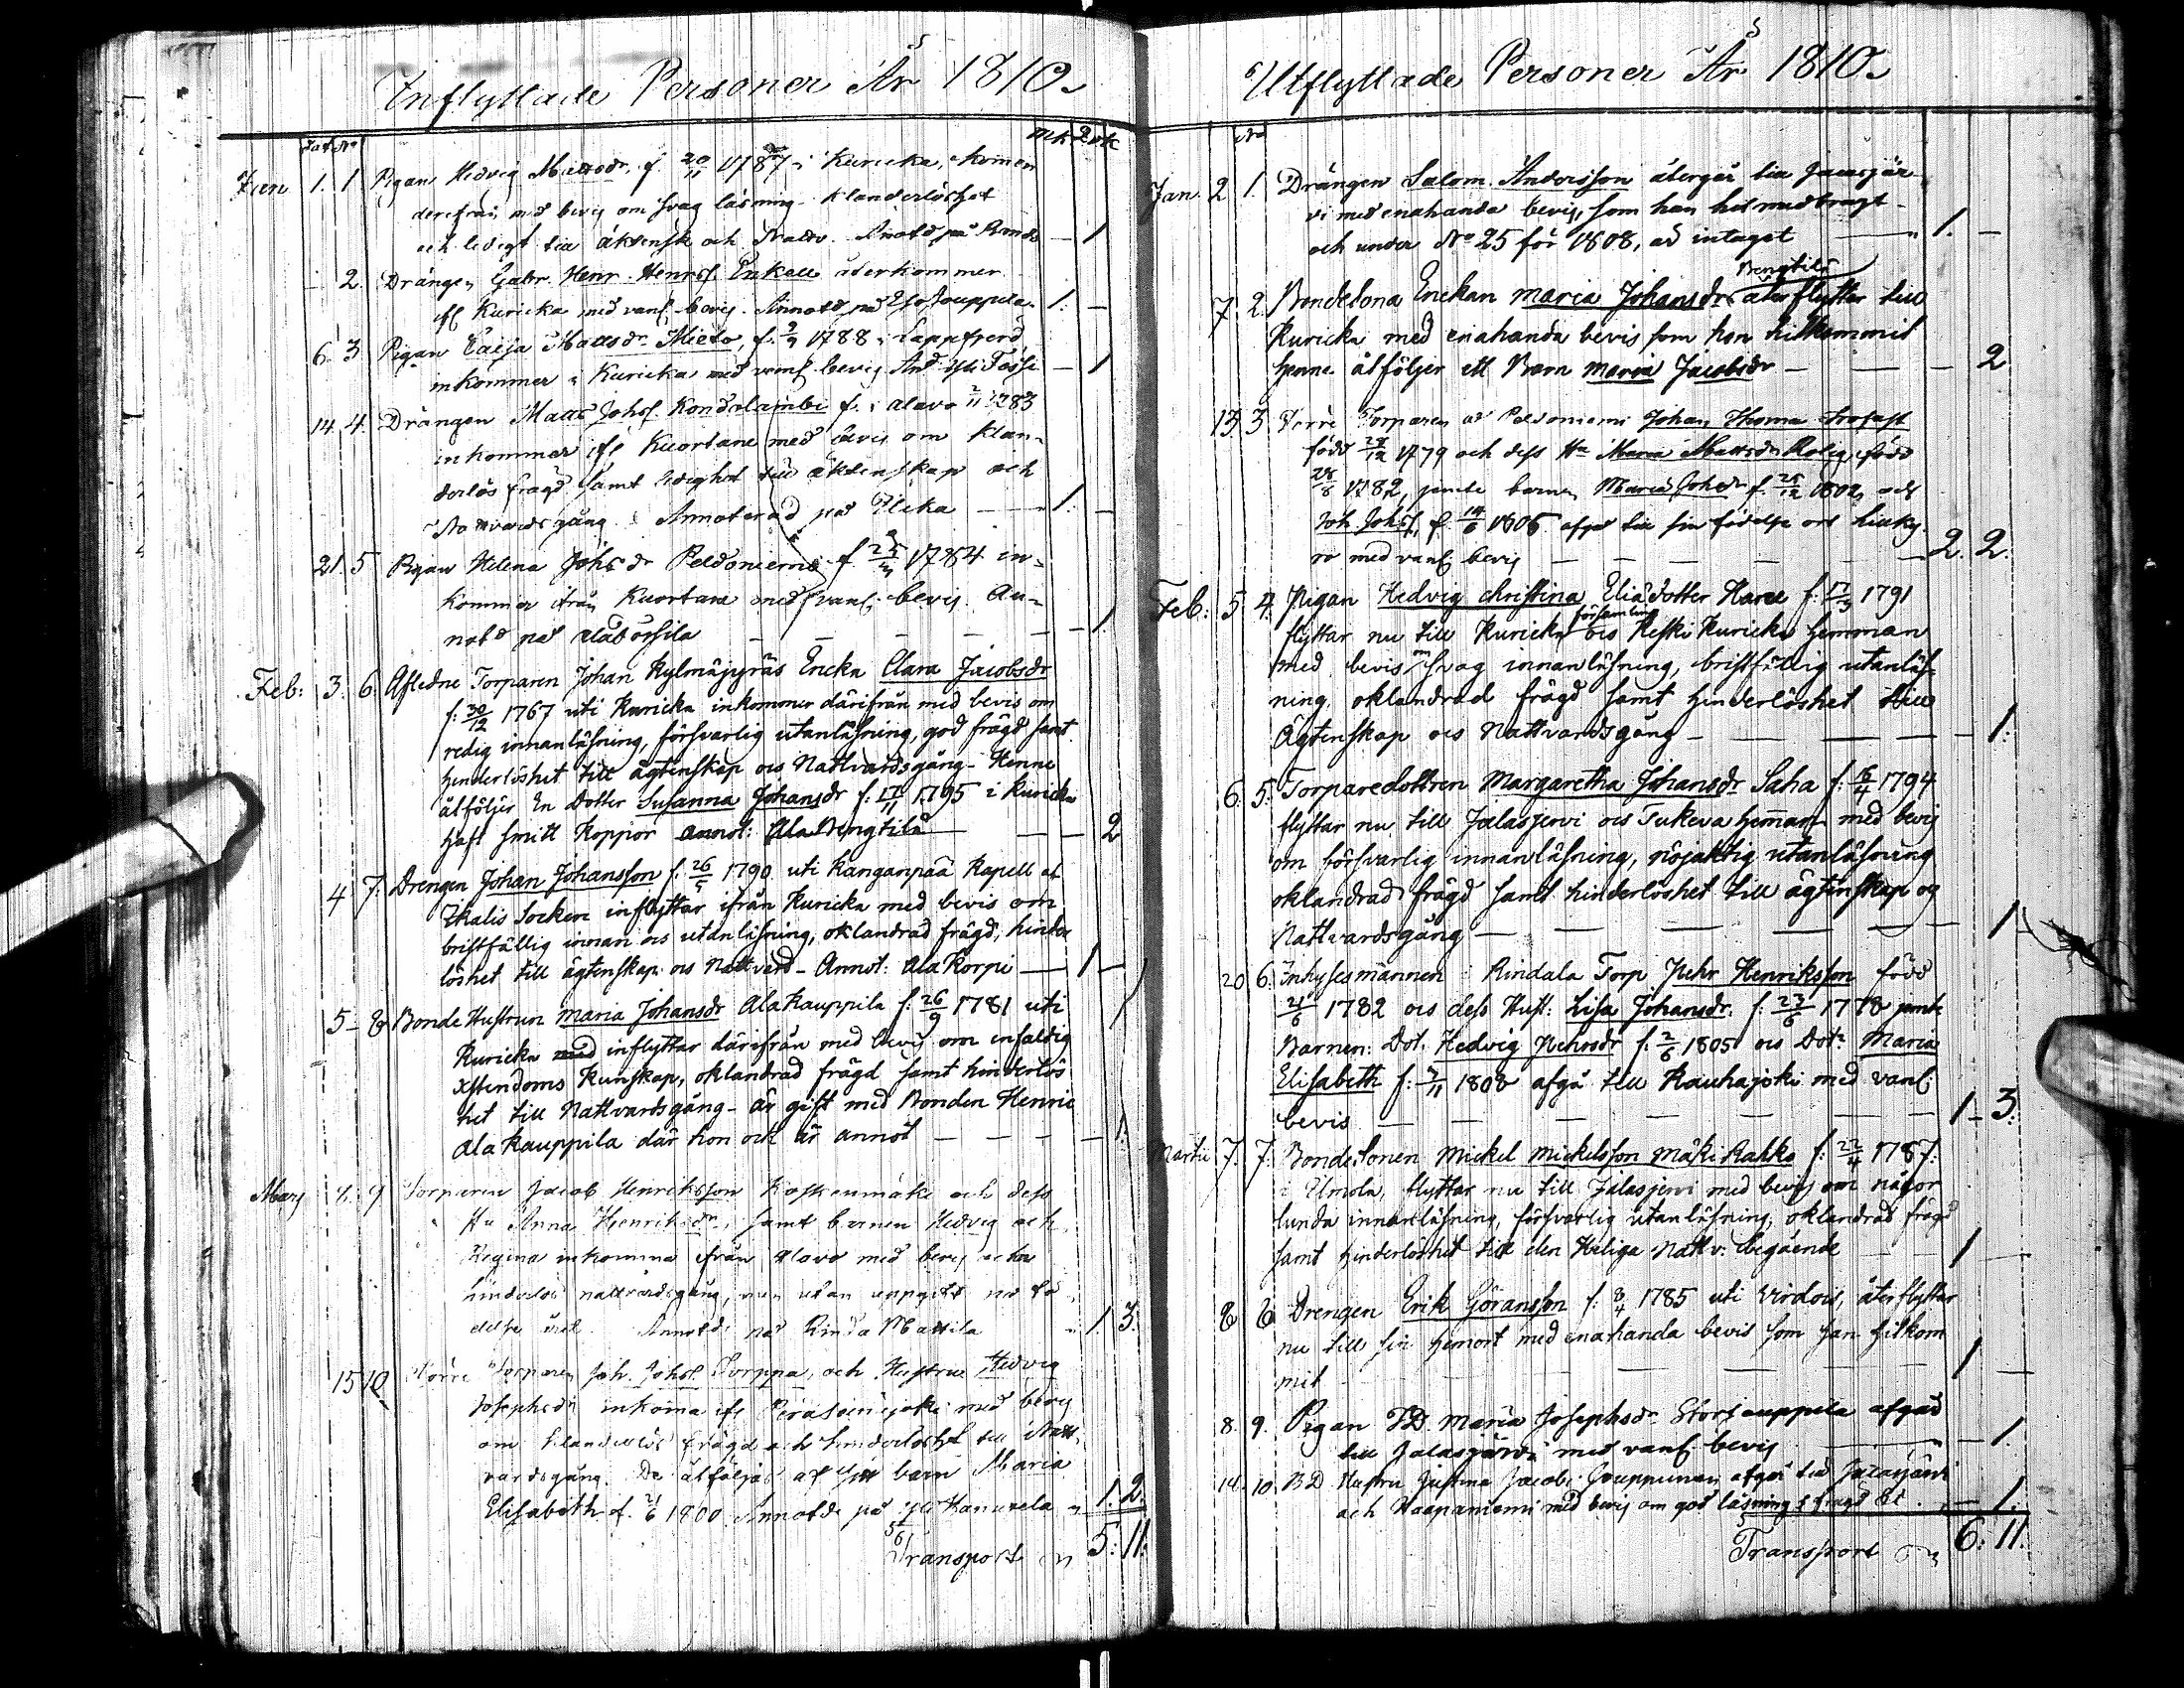 Inflyttade Personer År 1810.
Dat No Mk Qvk
Jan 1. 1 Pigan Hedvig Mattsdr, f. 20/11 1787 i Kuricka, kommen
derifrån med bevis om svag läsning klanderlöshet
och ledigt till äktensk och Nattv. Anotd på Bonds — 1
2. Drängen Gabr. Henr. Henrss. Enkall återkommer
ifr Kuricka med vanl. bevis. Annotd på Jouppila 1. —
6. 3 Pigan Caisa Mattsdr Mieto, f. 2/9 1788 i Lappfjerd
inkommer i Kuricka med vanl. bevis — 1
14. 4. Drängen Matts Johss. Kondolambi f. i Alavo 2/11 1783
inkommer ifr Kuortane med bevis om klan-
derlös frägd samt ledighet till äktenskap och
Nattvardsgång. Annoterad på Ilcka — 1. —
21. 5 Pigan Helena Johsdr Peldoniemi f. 25/3 1784 in-
kommer från Kuortane med vanl. bevis. An-
notd på — — — — 1.
Feb: 3. 6. Afledne Torparen Johan Kylmäpyräs Encka Clara Jacobsdr
f: 30/12 1767 uti Kuricka inkommer därifrån med bevis om
redig innanläsning, försvarlig utanläsning, god frägd samt
hinderlöshet till ägtenskap ocs Nattvardsgång - Henne
åtföljer En Dotter Susanna Johansdr f: 17/11 1795 i Kuricka
haft smitt koppor annot: Ala Bengtilä — — 2
4 7. Drengen Johan Johansson f: 26/5 1790 uti Kanganpää Kapell af
Ikalis Socken inflyttar ifrån Kuricka med bevis om
bristfällig innan ocs utanläsning, oklandrad frägd, hinder
löshet till ägtenskap ocs Nattvard - Annot: Ala Korpi — 1 —
5 - 8 Bonde Hustrun Maria Johansdr Ala Kauppila f: 26/9 1781 uti
Kuricka med inflyttar därifrån med bevis om enfaldig
Xstendoms kunskap, oklandrad frägd samt hinderlös
het till Nattvardsgång - är gift med Bonden Henric
Ala Kauppila där hon ock är annot — — — — 1.
Marj 4. 9 Torparen Jacob Henriksson Koskenmäki och dess
Hu Anna Henriksdr, samt barnen Hedvig och
Regina inkomma från Alavo med bevis
hinderlös nattvardsgång, men utan uppgift på fö
delse året. Annotde på Rinda Mattila 1. 3.
15 10 Förre Torparen Joh. Johss. Torppa, och Hustru Hedvig
Josephsdr inkoma ifr Peräseinejoki med bevis
om klanderlös frägd och hinderlöshet till Natt
vardsgång. De åtföljas af sitt barn Maria
Elisabeth f. 21/6 1800. Annotde på Hanuxela 1. 2
Transport 5: 11:
Utflyttade Personer År 1810.
No
Jan. 2 1. Drängen Salom. Andersson återgår till Jalasjär
vi med enahanda bevis, som han hit medbragt
och under No 25 för 1808, är intaget — 1. —
Bengtilä
7. 2. Bondesona Enckan Maria Johansdr återflyttar till
Kuricka med enahanda bevis som hon hitkommit
henne åtföljer ett Barn Maria Jacobsdr — — — 2
13 3 Förre Torparen at Peldoniemi Johan Thomas. Trofast
född 28/12 1779 och dess Hu Maria Mattsdr Rolig, född
28/8 1782, jemte barnen Maria Johsdr f. 25/12 1802, och
Joh. Johss., f. 14/6 1806 afgår till sin födelse ort Lillky
ro med vanl. bevis — — — — 2. 2.
Feb: 5 4. Pigan Hedvig Christina Eliædotter Harre f: 17/3 1791
församling
flyttar nu till Kuricka ocs Keski Kuricka Hemman
med bevis om svag innanläsning, bristfällig utanläs-
ning, oklandrad frägd samt hinderlöshet till
Ägtenskap ocs Nattvardsgång — — — — 1.
6. 5. Torparedottren Margaretha Johansdr Saha f: 16/4 1794
flyttar nu till Jalasjervi ocs Tukeva hemman med bevis
om försvarlig innanläsning, nöjaktig utanläsning
oklandrad frägd samt hinderlöshet till ägtenskap og
Nattvardsgång — — — — — 1
20 6. Inhysesmannen i Rindala Torp Pehr Henriksson född
21/6 1782 ocs dess Hust: Lisa Johansdr. f: 23/6 1778 jemte
Barnen: Dot. Hedvig Pehrsdr f: 2/6 1805 ocs Dotr Maria
Elisabeth f: 7/11 1808 afgå till Kauhajoki med vanl.
bevis — — — — — — 1 - 3.
Martii 7. 7. Bondesonen Mickel Mickelsson Mäki Rahko f: 22/4 1787.
i Ilmola, flyttar nu till Jalasjervi med bevis om någor
lunda innanläsning, försvarlig utanläsning, oklandrad frägd
samt hinderlöshet till den Heliga Nattv: begående — 1 —
8 8 Drengen Erik Göransson f: 8/4 1785 uti Virdois, återflyttar
nu till sin hemort med enahanda bevis som han hitkom
mit — — — — — 1 —
8. 9. Pigan TD. Maria Josephsdr Storjouppila afgåd
till Jalasjärvi med vanl. bevis — — 1.
14. 10. BD Hustru Justina Jacobs. Jouppunen afgår till Jalasjärvi
och Haapaniemi med bevis om god läsning & frägd &c. — 1.
Transport 6: 11.